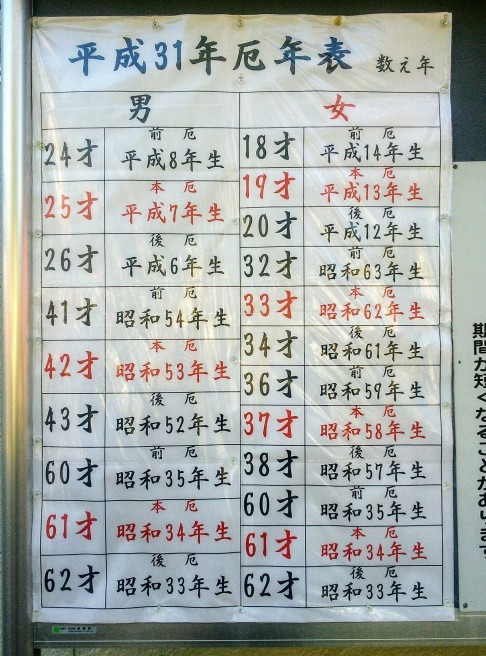 平成31年厄年表 数え年
男
24才 前厄 平成8年生
25才 本厄 平成7年生
26才 後厄 平成6年生
41才 前厄 昭和54年生
42才 本厄 昭和53年生
43才 後厄 昭和52年生
60才 前厄 昭和35年生
61才 本厄 昭和34年生
62才 後厄 昭和33年生
女
18才 前厄 平成14年生
19才 本厄 平成13年生
20才 後厄 平成12年生
32才 前厄 昭和63年生
33才 本厄 昭和62年生
34才 後厄 昭和61年生
36才 前厄 昭和59年生
37才 本厄 昭和58年生
38才 後厄 昭和57年生
60才 前厄 昭和35年生
61才 本厄 昭和34年生
62才 後厄 昭和33年生
期間が短くなることがあります